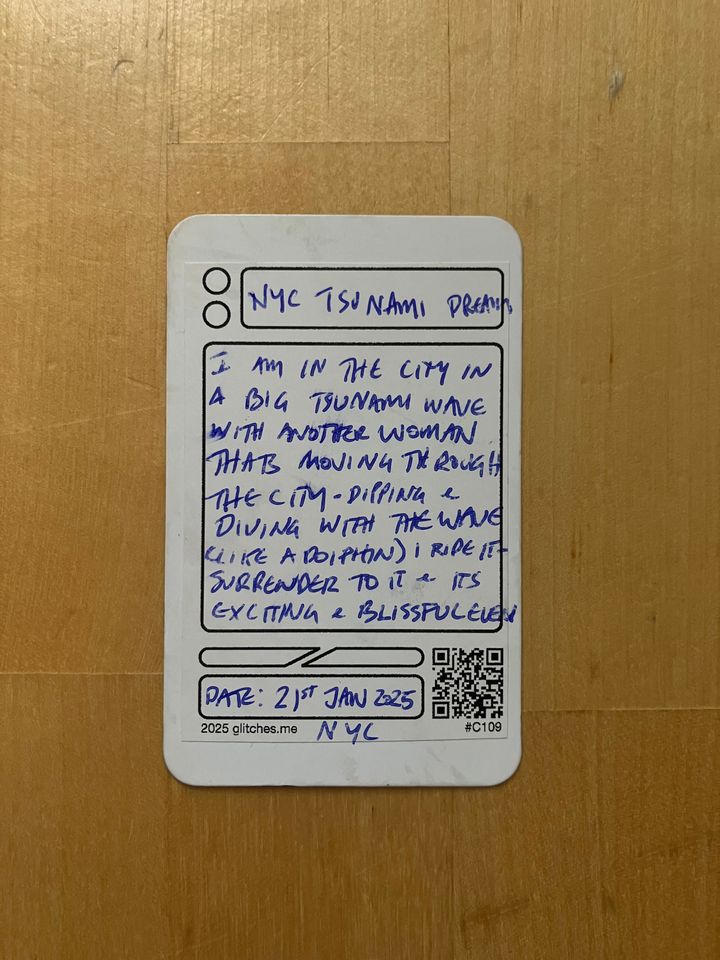 NYC TSUNAMI DREAM
I AM IN THE CITY IN
A BIG TSUNAMI WAVE
WITH ANOTHER WOMAN
THATS MOVING THROUGH
THE CITY - DIPPING &
DIVING WITH THE WAVE
(LIKE A DOLPHIN) I RIDE IT-
SURRENDER TO IT & ITS
EXCITING & BLISSFUL EVEN
DATE: 21ST JAN 2025
NYC
2025 glitches.me
#C109